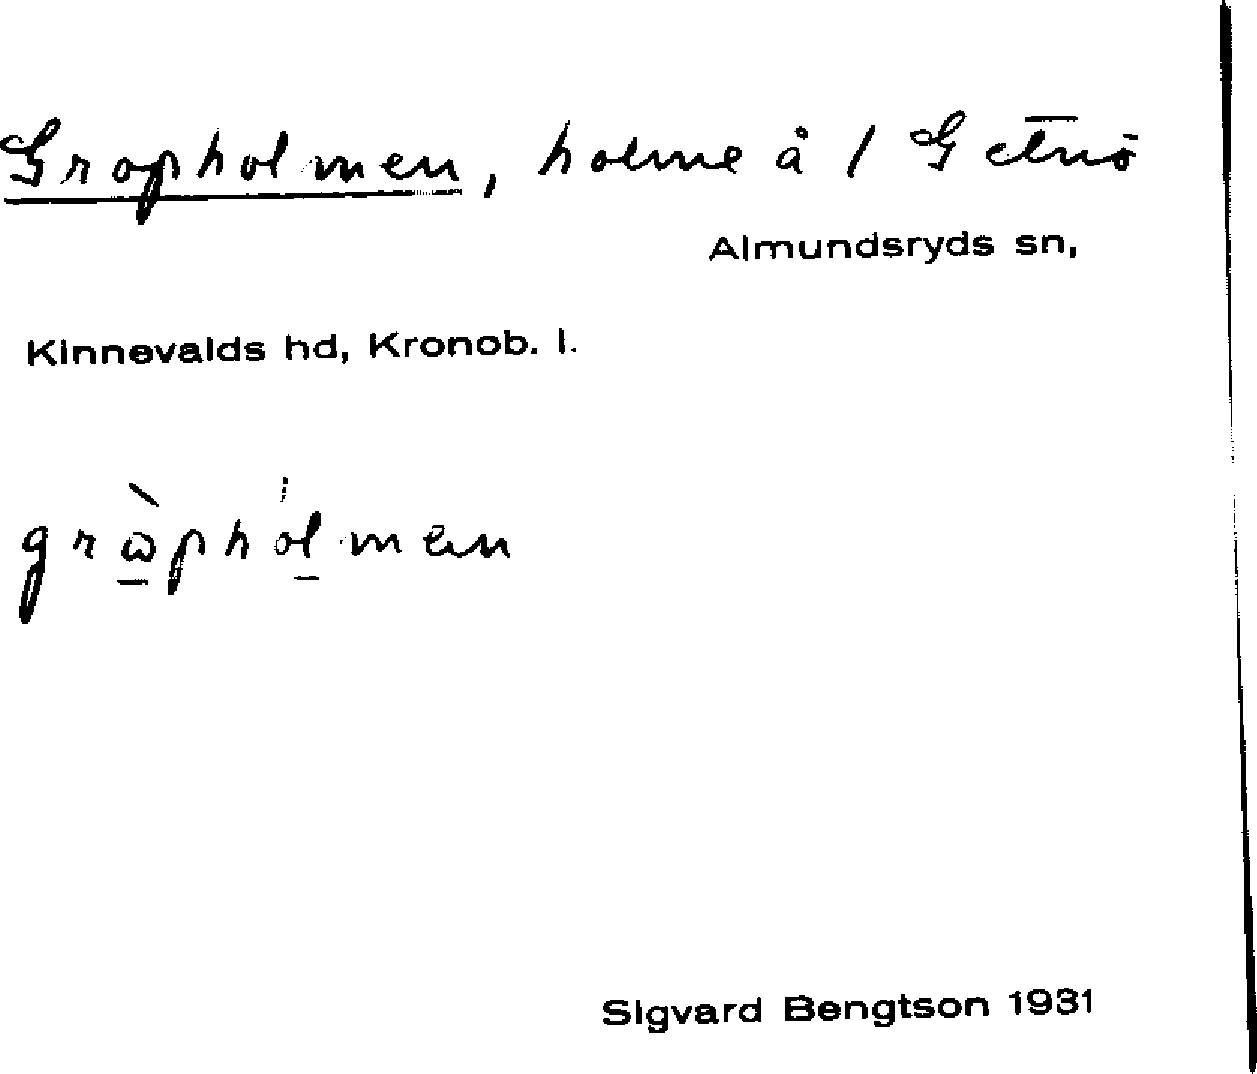 Gropholmen, holme å 1 Getnö
Almundsryds sn,
Kinnevalds hd, Kronob. l.
grὼphólmen
Sigvard Bengtson 1931